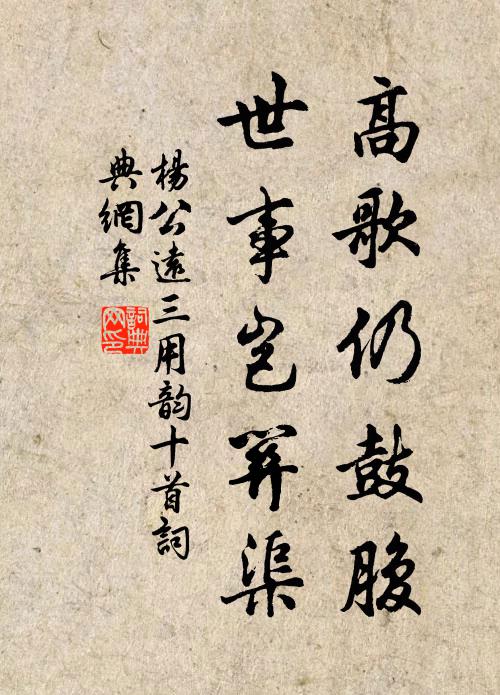 高歌仍鼓腹
世事岂關渠
楊公遠三用韵十首詞
典網集
詞典
网印